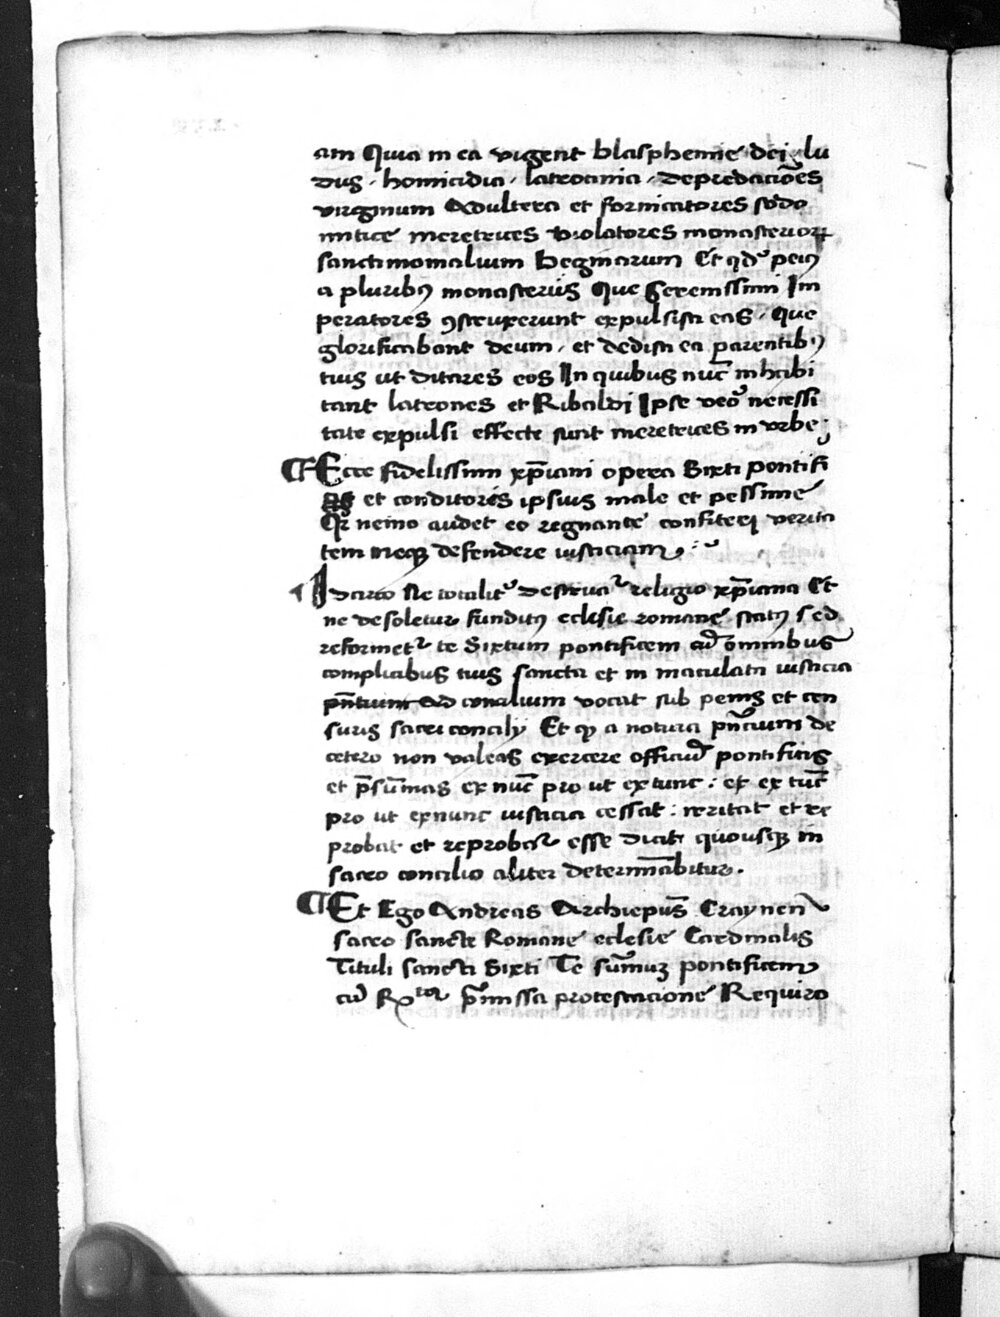 am Quia in ea vigent blasphemie dei glu
dus, homicidia, latrocinia, depredac̄ōes
virginum Adultera et fornicatores sodo
mitice meretrices violatores monasterioꝝ
sanctimonialium Beginarum Et qd' peiꝰ
a pluribꝰ monasteriis Que Serenissimi Im
peratores ꝯstruxerunt expulisti eas, que
glorificabant deum, et dedisti ea parentibꝰ
tuis ut ditares eos In quibus nūc inhabi
tant latrones et Ribaldi Ipse vēo necessi
tate expulsi effecte sunt meretrices in vrbe;
Ecce fidelissimi xp̄iani opera Sixti pontifi
et conditores ipsius male et pessime
Qr nemo audet eo regnante confiteri verita
tem neqꝫ defendere iusticiam,
Idcirco Ne totalit' destrua' religio xp̄iana Et
ne desoletur funditꝰ ecclesie romane statꝰ sed
reformet' te Sixtum pontificem cū omnibus
complicibus tuis sancta et in maculata iusticia
pn̄tium Ad concilium vocat sub penis et cen
suris sacri concilij Et ꝙ a noticia pn̄cium de
cetero non valeas exercere officiū pontificis
et p̄sūmas ex nūc pro ut ex tunc: et ex tūc
pro ut exnunc iusticia cessat: irritat et re
probat et reprobatur esse dicit quousqꝫ in
sacro concilio aliter determīabitur.
Et Ego Andreas Archiepūs Craynen̄
sacro sancte Romane ecclesie Cardinalis
Tituli sancti Sixti Te sūmuꝫ pontificem
cū p̄missa protestacione Requiro